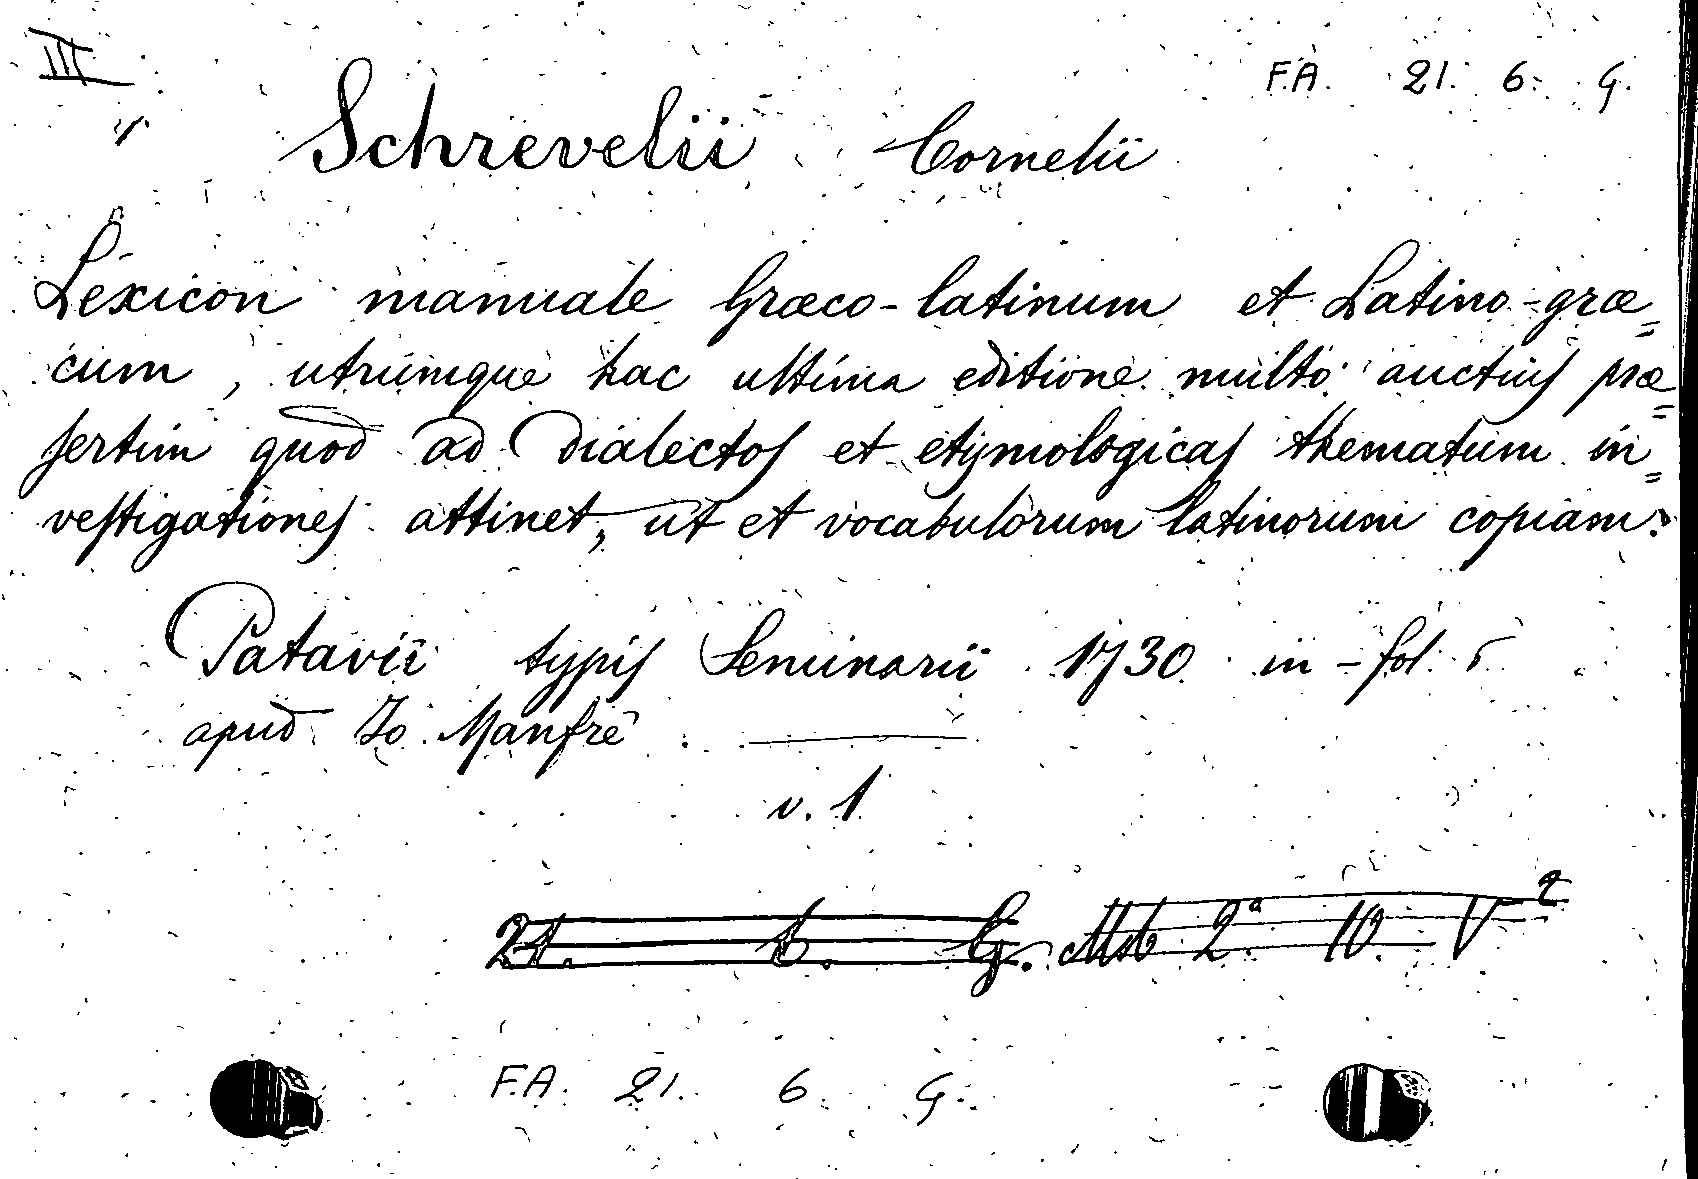 III
F.A. 21. 6. G.
Schrevelii Cornelii
Lexicon manuale Græco-latinum et Latino-græ=
cum, utrumque hac ultima editione multo auctius præ=
sertim quod ad dialectos et etymologicas thematum in=
vestigationes attinet, ut et vocabulorum latinorum copiam.
Patavii typis Seminarii 1730 in-fol.
apud Jo. Manfrè
v. 1
21. G. Msb 2ª 10. V²
F.A. 21. 6 G.